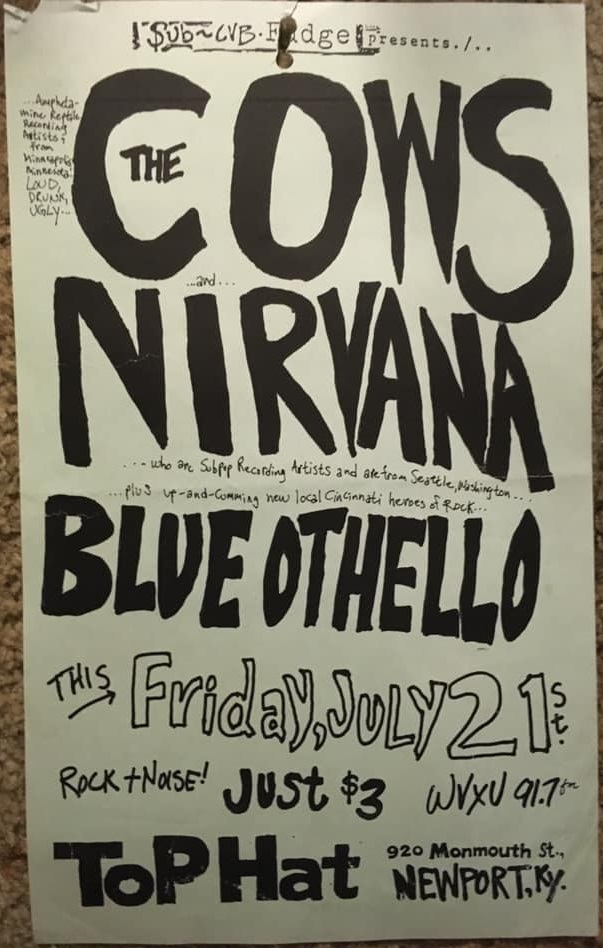 $ub~CVB·Fudge presents./..
...Ampheta-
mine Reptile
Recording
Artists;
from
Minneapolis
Minnesota!
LOUD,
DRUNK,
UGLY...
THE COWS
...and...
NIRVANA
...who are Subpop Recording Artists and are from Seattle, Washington...
...plus up-and-cumming new local Cincinnati heroes of ROCK...
BLUE OTHELLO
THIS Friday, JULY 21st.
ROCK + NOISE! JUST $3 WVXU 91.7fm
ToP Hat 920 Monmouth St.,
NEWPORT, Ky.